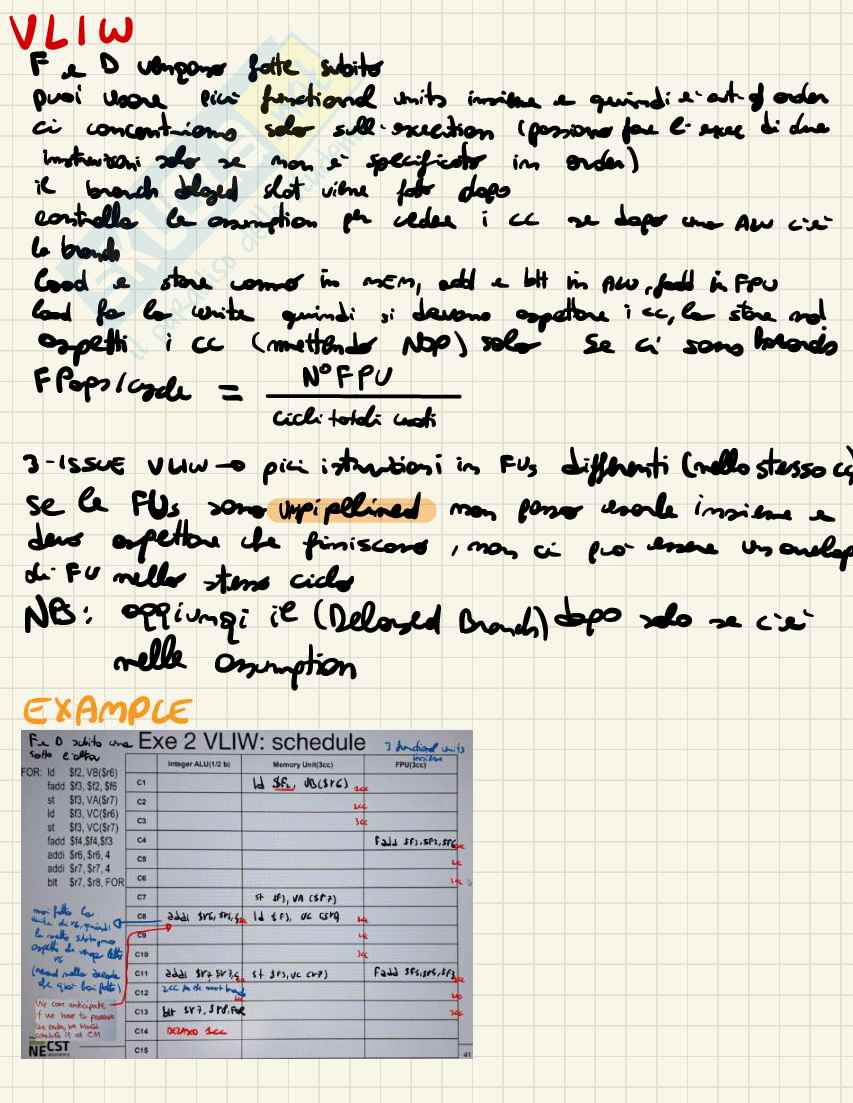 VLIW
F e D vengono fatte subito
puoi usare più functional units insieme e quindi è out of order
ci concentriamo solo sull'execution (possiamo fare l'exec di due
instruzioni solo se non è specificato in order)
il branch delayed slot viene fatto dopo
controlla le assumption per vedere i cc se dopo una ALU c'è
la branch
load e store vanno in MEM, add e blt in ALU, fadd in FPU
load fa la write quindi si devono aspettare i cc, la store
aspetti i cc (mettendo NOP) solo se ci sono
FPops/cycle = N° FPU
cicli totali usati
3-ISSUE VLIW → più istruzioni in FUs differenti (nello stesso cc)
se le FUs sono unpipelined non posso usarle insieme e
devo aspettare che finiscano, non ci può essere un overlap
di FU nello stesso ciclo
NBS: aggiungi il (Delayed Branch) dopo solo se c'è
nelle assumption
EXAMPLE
F e D subito una
sotto l'altra
Exe 2 VLIW: schedule
3 functional units
insieme
Integer ALU(1/2 b) Memory Unit(3cc) FPU(3cc)
FOR: ld $f2, VB($r6)
fadd $f3, $f2, $f6
st $f3, VA($r7)
ld $f3, VC($r6)
st $f3, VC($r7)
fadd $f4,$f4,$f3
addi $r6, $r6, 4
addi $r7, $r7, 4
blt $r7, $r8, FOR
C1 ld $f2, VB($r6) 1cc
C2 2cc
C3 3cc
C4 Fadd $f3,$f2,$f6
C5
C6
C7 st $f3, VA ($r7)
C8 addi $r6,$r6,4 ld $f3, VC
C9
C10
C11 addi $r7 $r7 4 st $f3,VC ($r7) Fadd
C12 2cc
C13 blt $r7, $r8, FOR
C14 DELAYED 1cc
C15
We can anticipate
if we have to
NECST
41